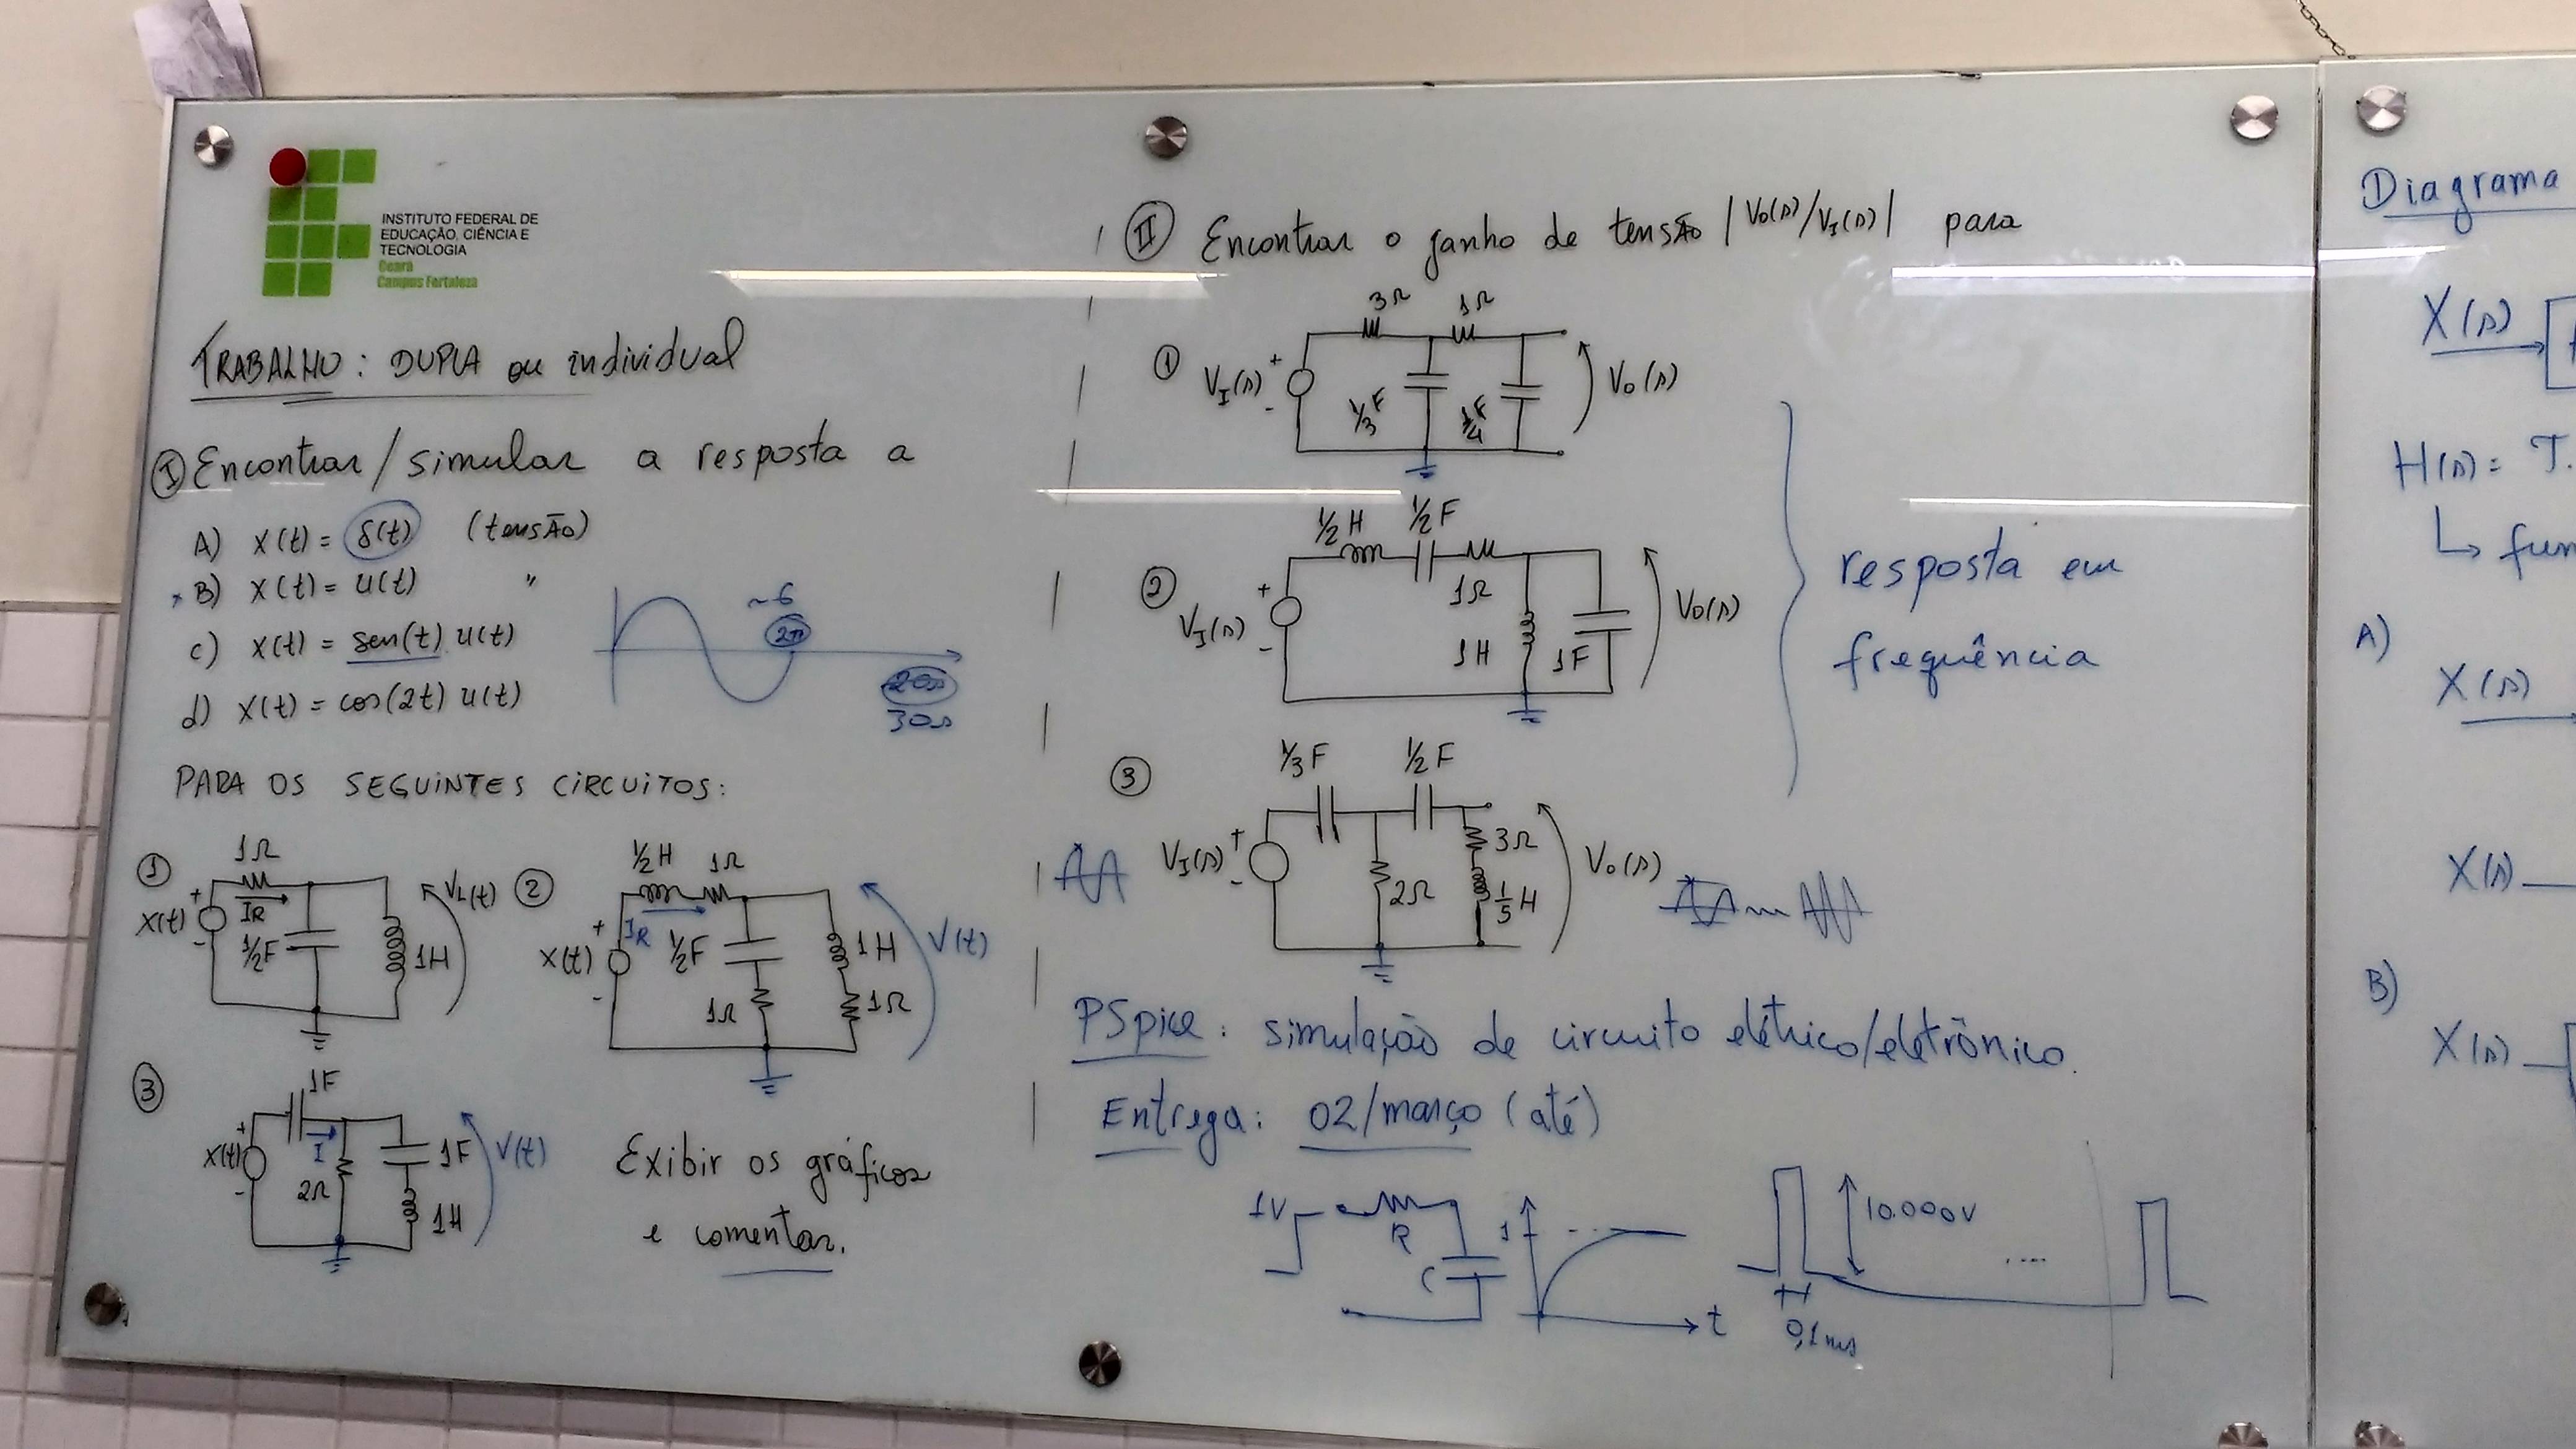 INSTITUTO FEDERAL DE
EDUCAÇÃO, CIÊNCIA E
TECNOLOGIA
Ceará
Campus Fortaleza
TRABALHO: DUPLA ou individual
I Encontrar/simular a resposta a
A) x(t) = δ(t) (tensão)
B) x(t) = u(t) "
c) x(t) = sen(t) u(t)
d) x(t) = cos(2t) u(t)
~6
2π
20s
30s
PARA OS SEGUINTES CIRCUITOS:
1
1Ω
+
x(t)
-
IR
1/2F
1H
VL(t)
2
1/2H 1Ω
+
x(t)
-
IR
1/2F
1Ω
1H
1Ω
V(t)
3
1F
+
x(t)
-
I
2Ω
1F
1H
V(t)
Exibir os gráficos
e comentar.
II Encontrar o ganho de tensão |Vo(s)/VI(s)| para
1
3Ω 1Ω
VI(s)
+
-
1/3F
1/4F
Vo(s)
2
1/2H 1/2F
1Ω
+
VI(s)
-
1H
1F
Vo(s)
3
1/3F 1/2F
VI(s)
+
-
2Ω
3Ω
1/5H
Vo(s)
resposta em
frequência
PSpice: simulação de circuito elétrico/eletrônico.
Entrega: 02/março (até)
1V
R
C
1
t
10.000V
....
0,1ms
Diagrama
X(s)
H(s) = T.
↳ fun
A)
X(s)
X(s)
B)
X(s)